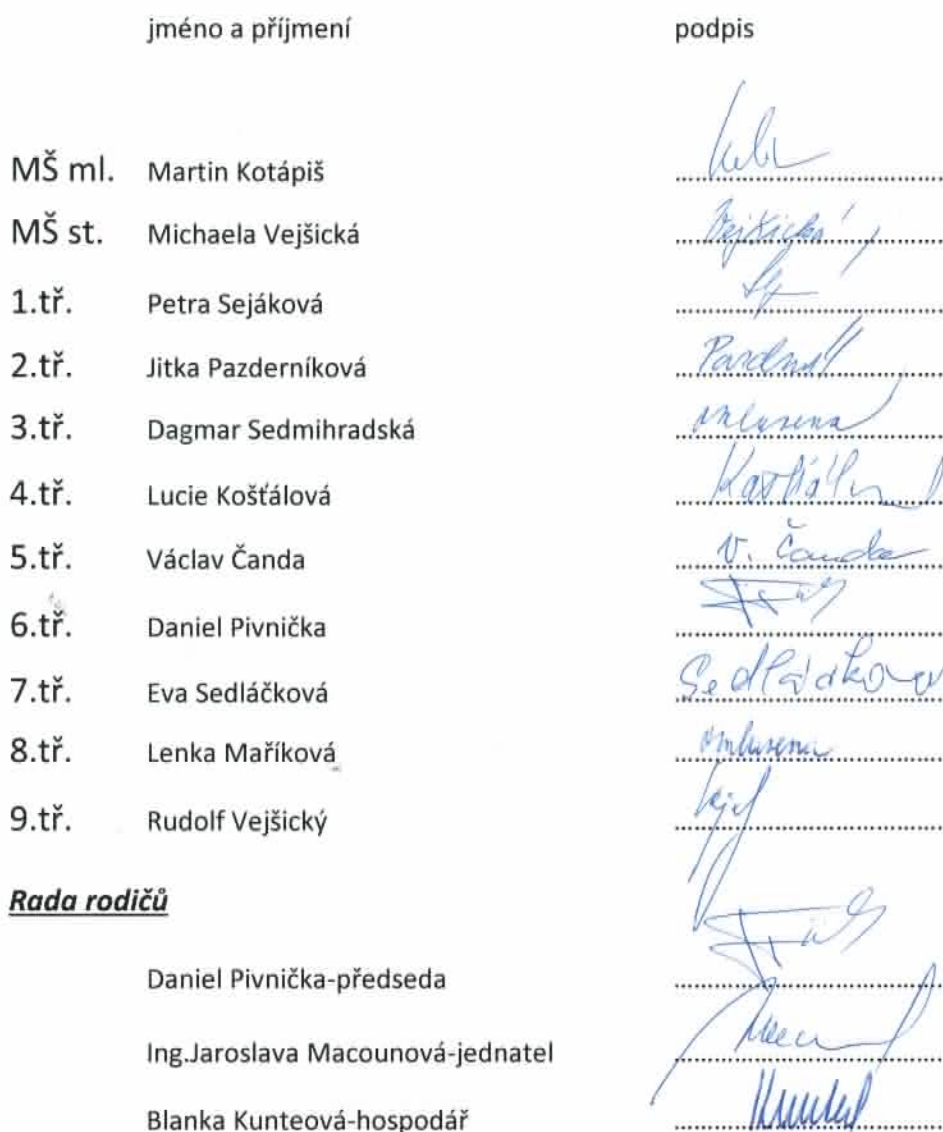 jméno a příjmení podpis
MŠ ml. Martin Kotápiš
MŠ st. Michaela Vejšická Vejšická
1.tř. Petra Sejáková
2.tř. Jitka Pazderníková
3.tř. Dagmar Sedmihradská omluvena
4.tř. Lucie Košťálová
5.tř. Václav Čanda V. Čanda
6.tř. Daniel Pivnička
7.tř. Eva Sedláčková Sedláčková
8.tř. Lenka Maříková omluvena
9.tř. Rudolf Vejšický
Rada rodičů
Daniel Pivnička-předseda
Ing.Jaroslava Macounová-jednatel
Blanka Kunteová-hospodář